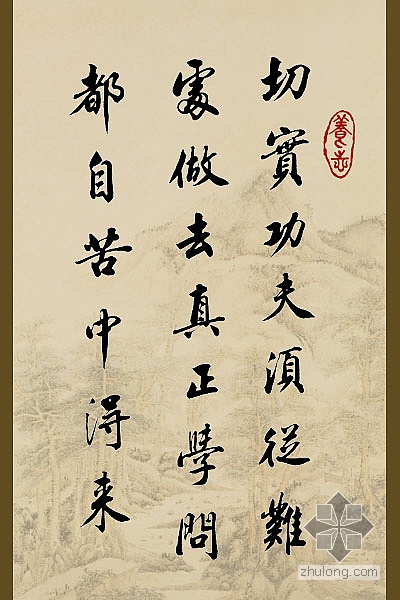 養志
切實功夫須從難
處做去真正學問
都自苦中得来
zhulong.com